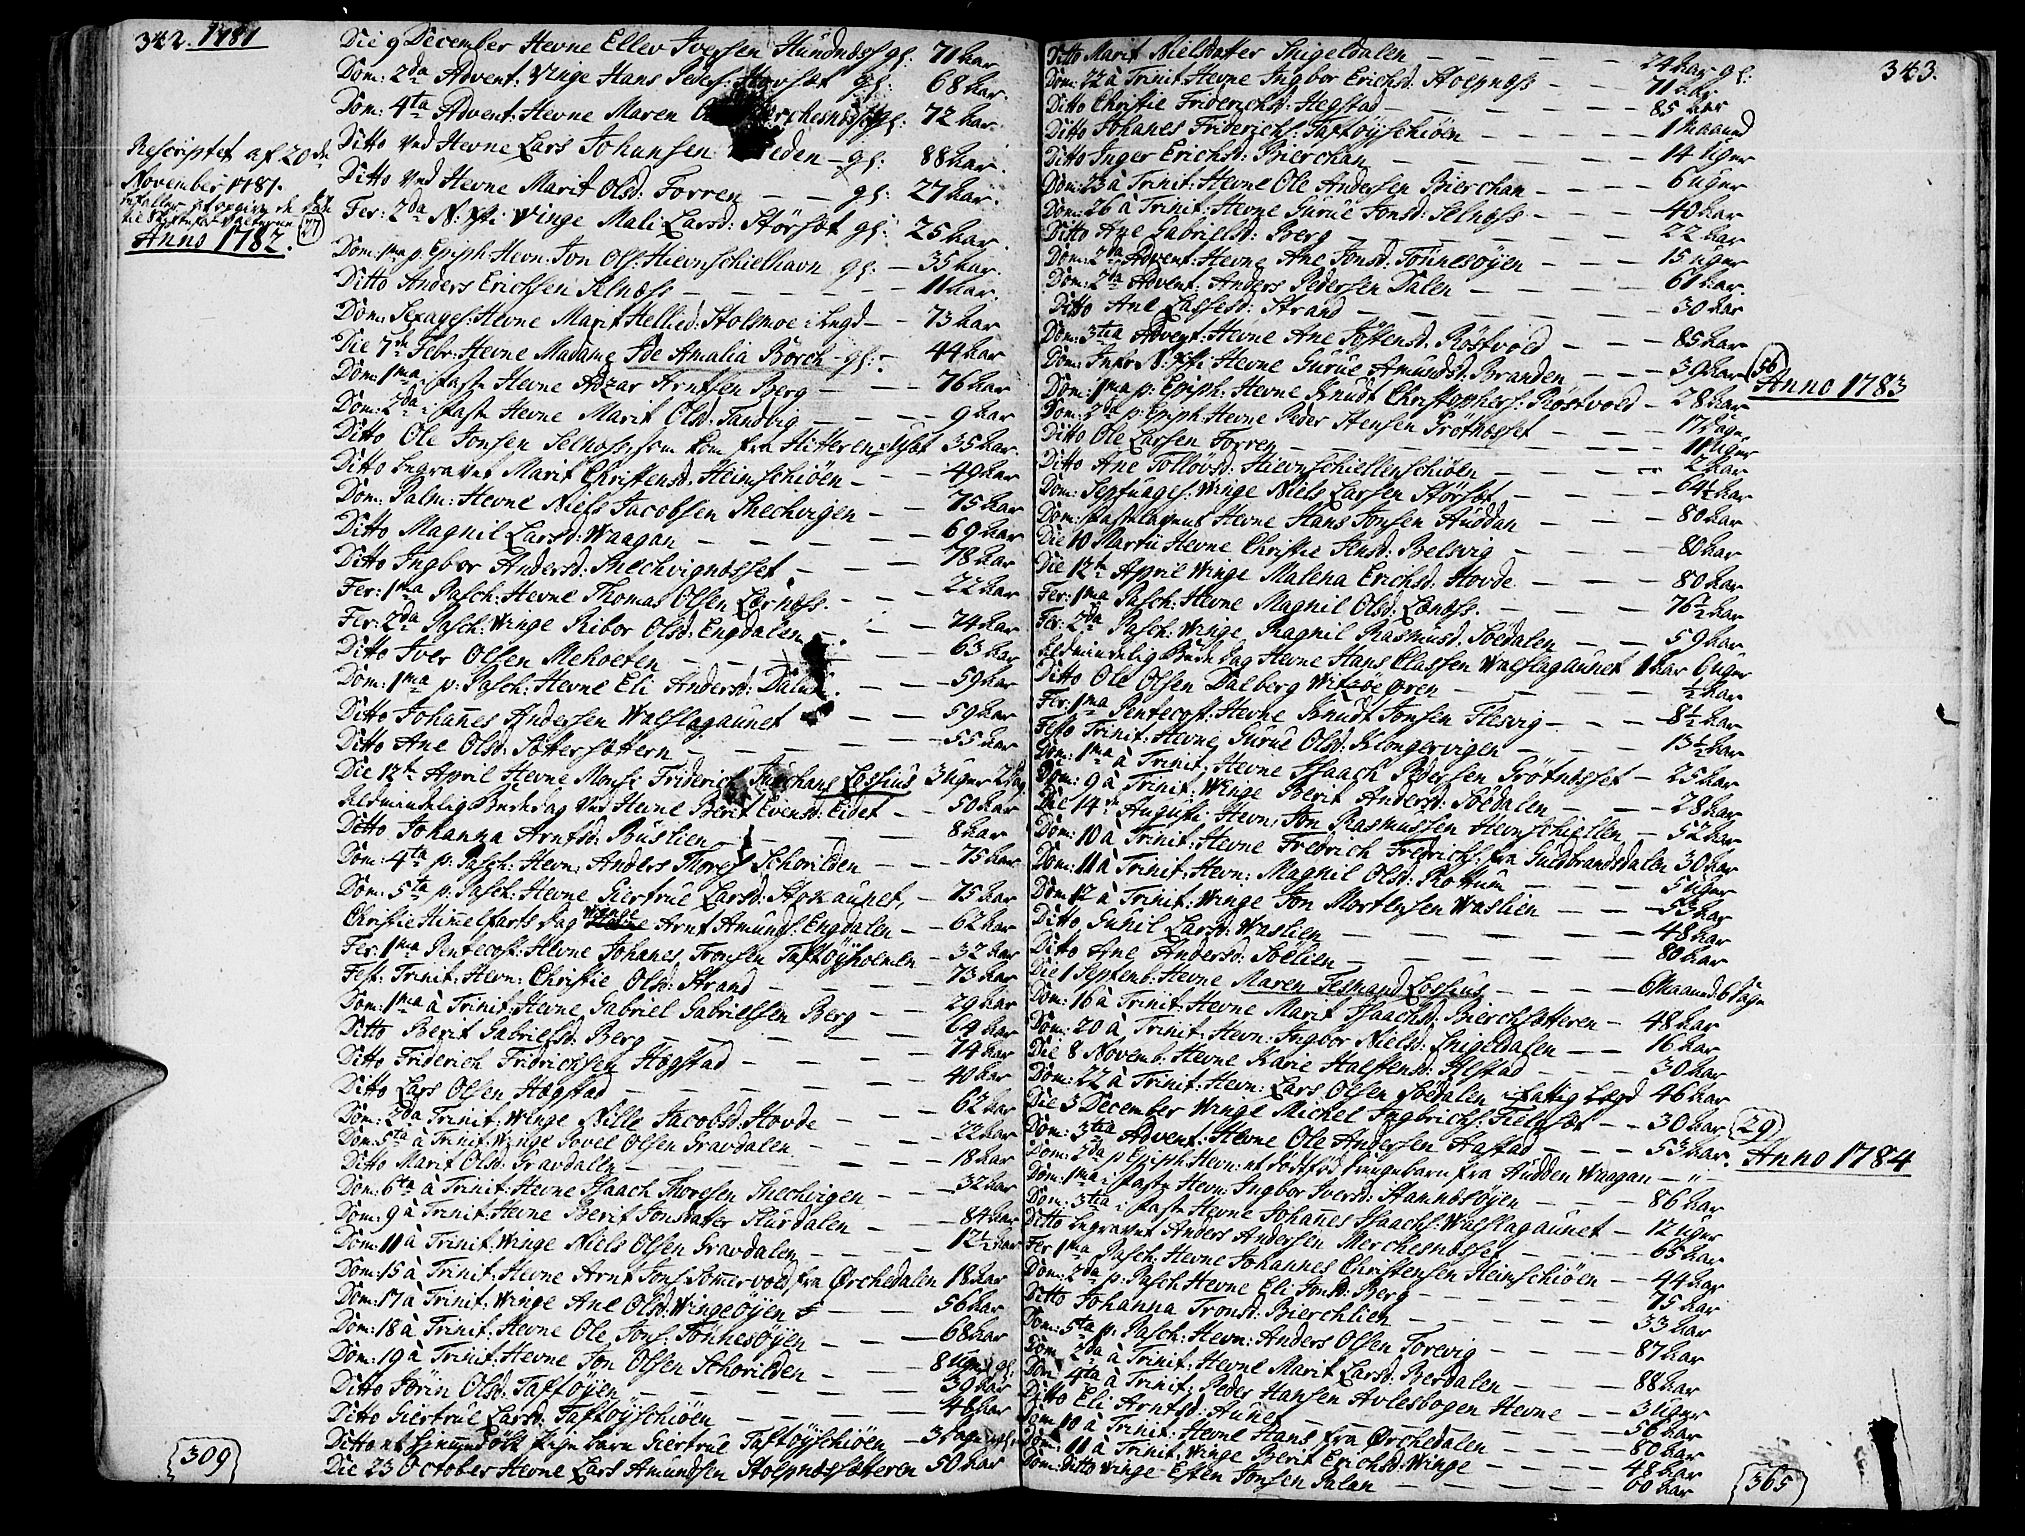 342. 1781
Die 9 December Hevne Ellev Iversen Hundnæss gl: 71 aar
Dom: 2da Advent: Vinge Hans Peders: gl: 68 aar.
Dom: 4ta Advent: Hevne Maren gl: 72 aar.
Ditto Ved Hevne Lars Johansen gl: 88 aar.
Rescriptet af 20de
November 1781.
Ditto Ved Hevne Marit Olsd: Forren — gl: 27 aar.
Fer: 2da N: Xsti Vinge Mali Larsd: Störset gl: 25 aar.
(27)
Anno 1782.
Dom: 1ma p: Epiph Hevn: Jon Ols: Hiernschielhavn gl: — 35 aar.
Ditto Anders Erichsen Selnæss — 11 aar.
Dom: Sexages: Hevne Marit Hellied: Stolsmoe i Legd — 73 aar
Die 7de Febr: Hevne Madame Ide Amalia Borch — gl: — 44 aar
Dom: 1ma i faste Hevne Adzar Arntsen Berg — 76 aar
Dom: 2da i faste Hevne Marit Olsd: Sandvig — 9 aar
Ditto Ole Jonsen Selnæss, som kom fra Hitteren 35 aar.
Ditto begravet Marit Christensd: Heimschiöen — 49 aar
Dom: Palm: Hevne Niels Jacobsen Snechvigen — 75 aar
Ditto Magnil Larsd: Waagan — 69 aar
Ditto Ingbor Andersd: Snechvignæsset — 78 aar
Fer: 1ma Pasch: Hevne Thomas Olsen Lernæss. — 22 aar
Fer: 2da Pasch: Vinge Ribor Olsd: Engdalen — 74 aar
Ditto Iver Olsen Mehoeten — 63 aar
Dom: 1ma p: Pasch: Hevne Eli Andersd: Dalum. — 59 aar
Ditto Johannes Andersen Walslagaunet — 59 aar
Ditto Ane Olsd: Sætersætern — 55 aar
Die 12te April Hevne Monsr Friderich Lossius 3 uger 2 dag
Almindelig Bededag Ved Hevne Berit Evensd: Eidet — 50 aar
Ditto Johanna Arntsd: Buslien — 8 aar
Dom: 4ta p: Pasch: Hevn: Anders Thores: Schorilden — 75 aar
Dom: 5ta p: Pasch: Hevne Giertrue Larsd: Stoxaunet, — 75 aar
Christie Himmelfarts dag Vinge Arnt Amunds: Engdalen — 62 aar
Fer: 1ma Pentecost: Hevne Johanes Tronsen Taftöyholmen — 32 aar
Fest: Trinit: Hevn: Christie Olsd: Strand — 73 aar
Dom: 1ma à Trinit: Hevne Gabriel Gabrielsen Berg — 29 aar
Ditto Berit Gabrielsd: Berg — 64 aar
Ditto Friderich Fridrichsen Hægstad — 74 aar
Ditto Lars Olsen Hægstad — 40 aar
Dom: 2da Trinit: Vinge Nille Jacobsd: Hovde — 62 aar
Dom: 5ta à Trinit: Vinge Povel Olsen Gravdalen — 22 aar
Ditto Marit Olsd: Gravdalen — 18 aar
Dom: 6ta à Trinit: Hevne Isaach Thoresen Snechvigen — 32 aar
Dom: 9 à Trinit: Hevne Berit Jonsdatter Sturdalen — 84 aar
Dom: 11 à Trinit: Vinge Niels Olsen Gravdalen — 12½ aar
Dom: 15 à Trinit: Hevne Arnt Jons: Somervold fra Orchedalen 18 aar
Dom: 17 à Trinit: Vinge Ane Olsd: Vingeöyen — 56 aar
Dom: 18 à Trinit: Hevne Ole Jons: Tönnesöyen — 68 aar
Dom: 19 à Trinit: Hevne Jon Olsen Schorilden — 8 uger gl:
Ditto Sörin Olsd: Taftöyen — 39 aar
Ditto Giertrue Larsd: Taftöyschiöen — 48 aar
Ditto et hiemmedöbt pige barn Giertrue Taftöyschiöen — 3 dage gl:
Die 23 October Hevne Lars Amundsen Stolpnæssæteren 50 aar
(309)
343.
Ditto Marit Nielsdatter Snigeldalen — 24 aar gl:
Dom: 22 à Trinit: Hevne Ingbor Erichsd: Stolpnæss — 71 aar
Ditto Christie Friderichsd: Hegstad — 85 aar
Ditto Johanes Friderichs: Taftöyschiöen — 1 maaned
Ditto Inger Erichsd: Bierchan — 14 uger
Dom: 23 à Trinit: Hevne Ole Andersen Bierchan — 6 uger
Dom: 26 à Trinit: Hevne Gurue Jonsd: Selnæss — 40 aar
Ditto Ane Gabrielsd: Berg — 22 aar
Dom: 2da Advent: Hevne Ane Jonsd: Tönnesöyen — 15 uger
Dom: 2da Advent: Anders Pedersen Dalen — 61 aar.
Ditto Ane Lassesd: Strand — 30 aar
Dom: 3tia Advent: Hevne Ane Jostensd: Röstvold — 85 aar
Dom: Infr: N: Xsti Hevne Gurue Amundsd: Branden — 39 aar (56)
Anno 1783
Dom: 1ma p: Epiph: Hevne Knudt Christophers: Röstvold — 28 aar
Dom: 2da p: Epiph Hevne Peder Stensen Grötnæsset — 17 dage
Ditto Ole Larsen Forren — 11 uger
Ditto Ane Tollövsd: Hiernschiellenschiöen — 2 aar
Dom: Septuages: Vinge Niels Larsen Störset — 64½ aar
Dom: Fastelagens Hevne Hans Jonsen Auddan — 80 aar
Die 10 Martii Hevne Christie Jensd: Belsvig — 80 aar
Die 12te April Vinge Malena Erichsd: Hovde — 80 aar
Fer: 1ma Pasch: Hevne Magnil Olsd: Lenæss. — 76½ aar
Fer: 2da Pasch: Vinge Ragnil Rasmusd: Soedalen — 59 aar.
Almindelig Bededag Hevne Hans Classen Walslagaunet 1 aar 6 uger
Ditto Ole Olsen Dalberg — ½ aar
Fer: 1ma Pentecost: Hevne Knudt Jonsen Flesvig — 8½ aar
Festo Trinit: Hevne Gurue Olsd: Klongervigen — 13½ aar
Dom: 1ma à Trinit: Hevne Isaach Pedersen Grötnæsset — 25 aar
Dom: 9 à Trinit: Vinge Berit Andersd: Söedalen — 28 aar
Die 14de Augusti Hevn: Jon Rasmussen Heinschiellen — 52 aar
Dom: 10 à Trinit: Hevne Fredrich Fredrichs: fra Guldbrandsdalen 30 aar
Dom: 11 à Trinit: Hevn: Magnil Olsd: Rottum — 5 uger
Dom: 12 à Trinit: Vinge Jon Mortensen Waslien — 53 aar
Ditto Gunil Larsd: Waslien — 48 aar
Ditto Ane Andersd: Soelien — 80 aar
Die 1 Septemb: Hevne Maren Tesmand Lossius — 6 Maaned 6 dage
Dom: 16 à Trinit: Hevne Marit Isaachsd: Bierchsætteren — 48 aar
Dom: 20 à Trinit: Hevn: Ingbor Nielsd: Snigeldalen — 16 aar
Die 8 Novemb: Hevne Karie Halstensd: Alstad — 30 aar
Dom: 22 à Trinit: Hevn: Lars Olsen Söedalen i fattig Lægd 46 aar
Die 3 December Vinge Michel Ingbrichs: Fieldset — 30 aar (29)
Dom: 3tia Advent: Hevne Ole Andersen Hastad — 53 aar.
Anno 1784
Dom: 2da p Epiph Hevn: et dödfød drængebarn fra Audden Waagan — " —
Dom: 1ma i faste Hevn: Ingbor Iversd: Stamnesöyen — 86 aar
Dom: 3tia i faste Hevne Johanes Isaachs: Walslagaunet — 12 uger
Ditto begravet Anders Andersen Merchesnæsset — 65 aar
Fer 1ma Pasch: Hevne Johannes Christensen Heinschiöen — 44 aar
Dom: 2da p: Pasch Hevne Eli Jonsd: Berg — 75 aar
Ditto Johanna Tronsd: Bierchlien — 33 aar
Dom: 5ta p: Pasch: Hevn: Anders Olsen Forevig — 87 aar
Dom: 2da à Trinit: Hevne Marit Larsd: Berdalen — 88 aar
Dom: 4ta à Trinit: Peder Hansen Avlesbogen Hevne — 3 uger
Ditto Eli Arntsd: Aunet — 56 aar
Dom: 10 à Trinit: Hevne Hans fra Orchedalen — 80 aar
Dom: 11 à Trinit: Vinge Berit Erichsd: Vinge — 48 aar
Dom: ditto Vinge Esten Jonsen Salan — 60 aar
(365)